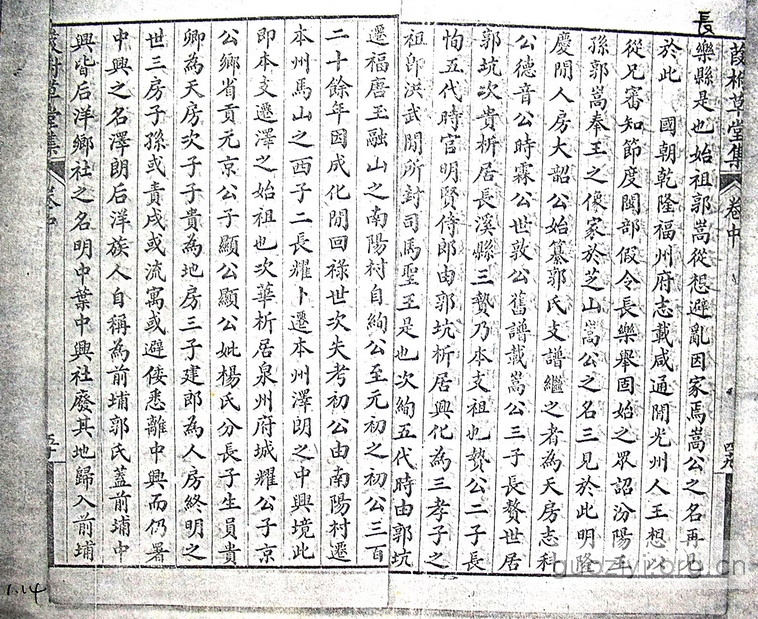 長
葭柎草堂集 卷中 四九
樂縣是也始祖郭嵩從想避亂因家焉嵩公之名再見
於此 國朝乾隆福州府志載咸通間光州人王想以
從兄審知節度閩部假令長樂舉固始之眾詔汾陽王
孫郭嵩奉王之像家於芝山嵩公之名三見於此明隆
慶間人房大韶公始纂郭氏支譜繼之者為天房志科
公德音公時霖公世敦公舊譜載嵩公三子長贅世居
郭坑次貴析居長溪縣三贄乃本支祖也贄公二子長
恂五代時官明賢侍郎由郭坑析居興化為三孝子之
祖即洪武間所封司馬聖王是也次絢五代時由郭坑
遷福唐玉融山之南陽村自絢公至元初之初公三百
二十餘年因成化間回祿世次失考初公由南陽村遷
本州馬山之西子二長耀卜遷本州澤朗之中興境此
即本支遷澤之始祖也次華析居泉州府城耀公子京
公鄉省貢元京公子顯公顯公妣楊氏分長子生員貴
卿為天房次子子貴為地房三子建郎為人房終明之
世三房子孫或責戍或流寓或避倭悉離中興而仍署
中興之名澤朗后洋族人自稱為前埔郭氏蓋前埔中
興皆后洋鄉社之名明中葉中興社廢其地歸入前埔
草堂集 卷中 五十
1.14
guoziyi.org.cn